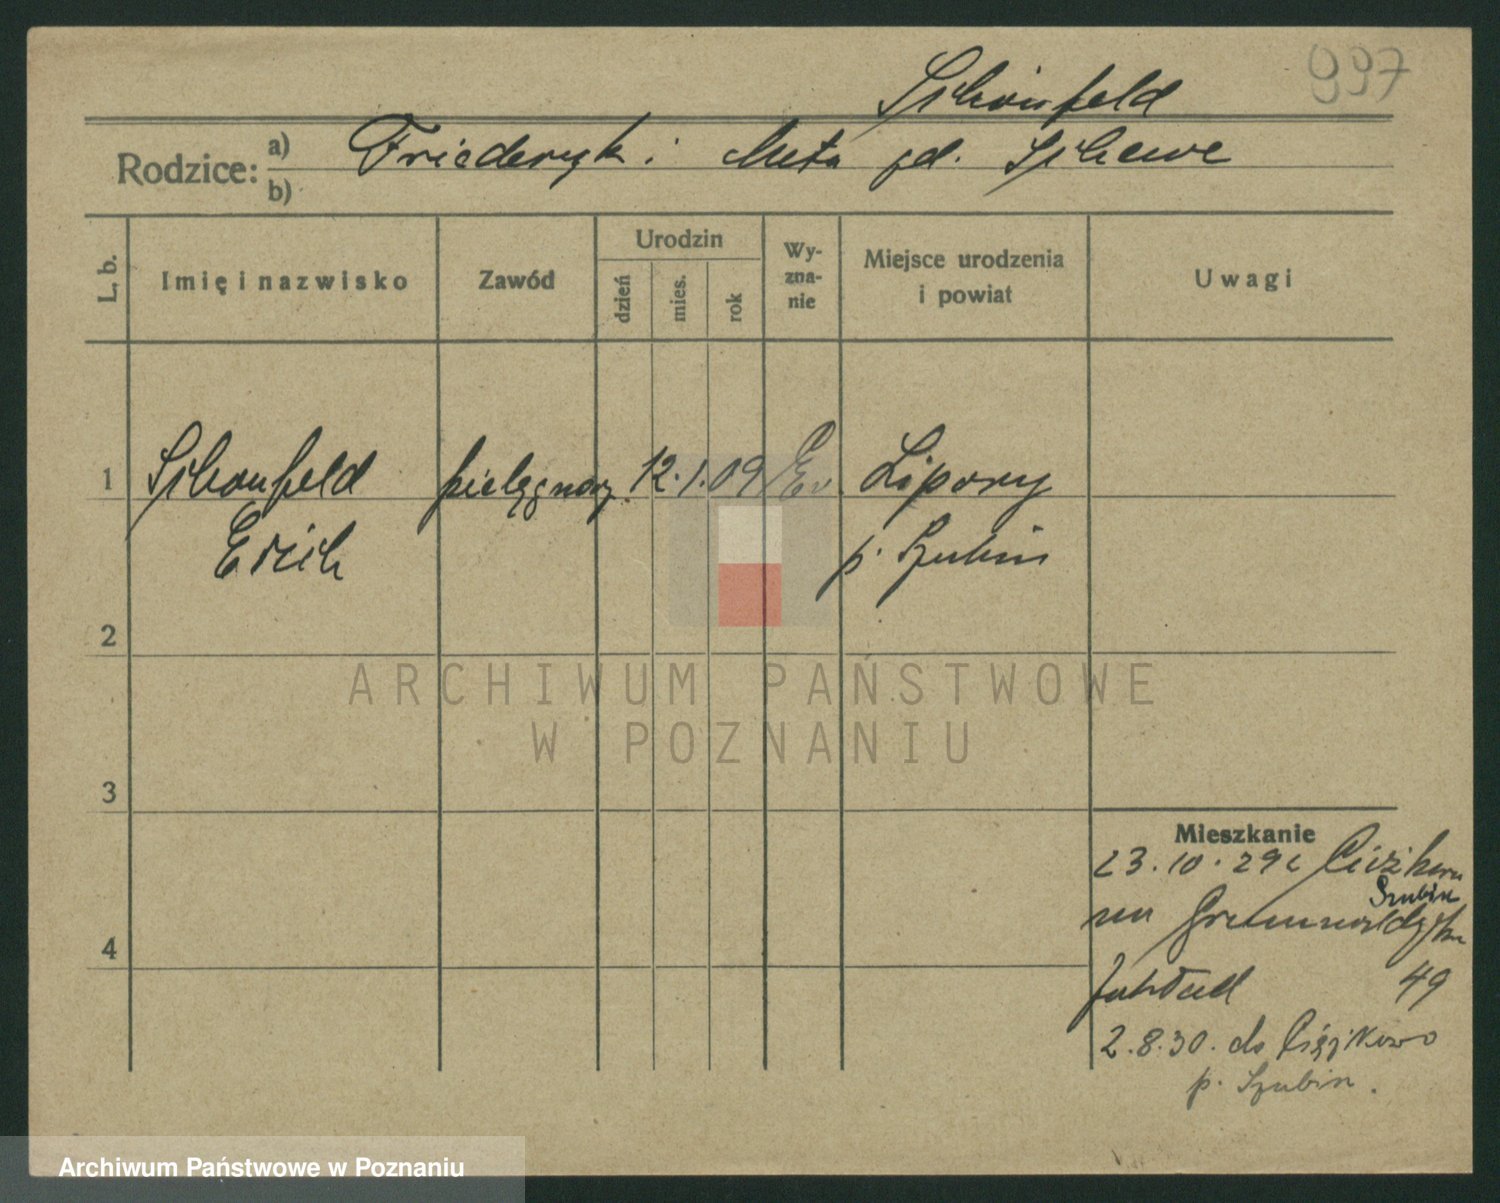 997
Schönfeld
Rodzice: a) Friederyk i Meta zd. Schewe
b)
L. b.
Imię i nazwisko
Zawód
Urodzin
dzień
mies.
rok
Wy-
zna-
nie
Miejsce urodzenia
i powiat
Uwagi
1 Schonfeld pielęgniarz 12. 1. 09 Ev. Lipowy
Erich p. Szubin
2
3
4
Mieszkanie
23.10.29 z Ciężkowa
Szubin
na Grunwaldzka
zakład 49
2.8.30. do Ciężkowo
p. Szubin.
ARCHIWUM PAŃSTWOWE
W POZNANIU
Archiwum Państwowe w Poznaniu